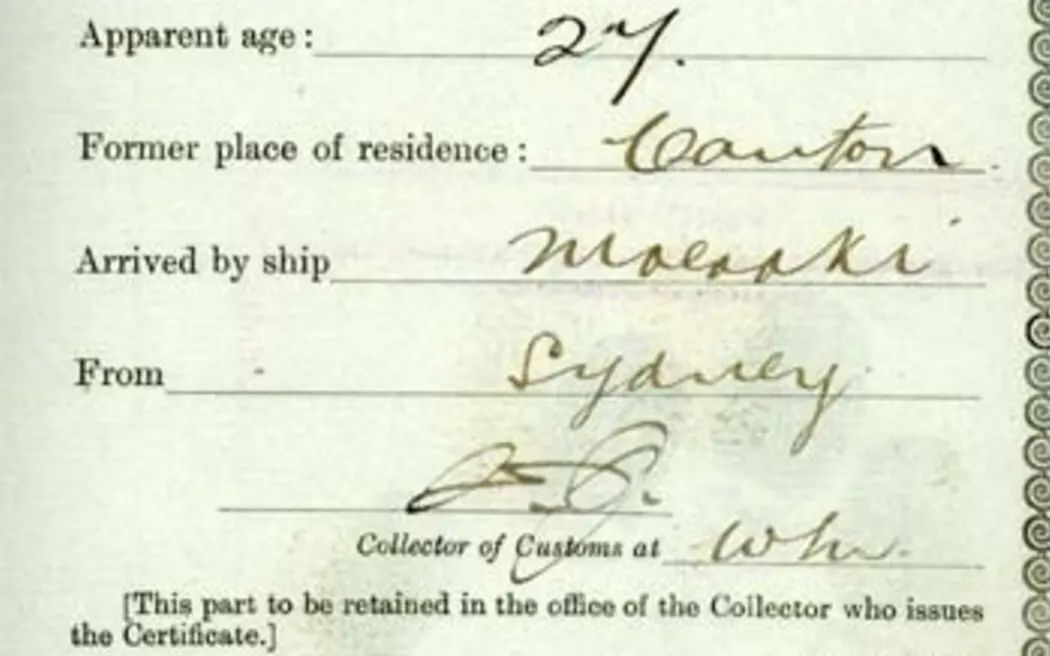 Apparent age: 27.
Former place of residence: Canton.
Arrived by ship Moeraki
From Sydney
Collector of Customs at
[This part to be retained in the office of the Collector who issues
the Certificate.]